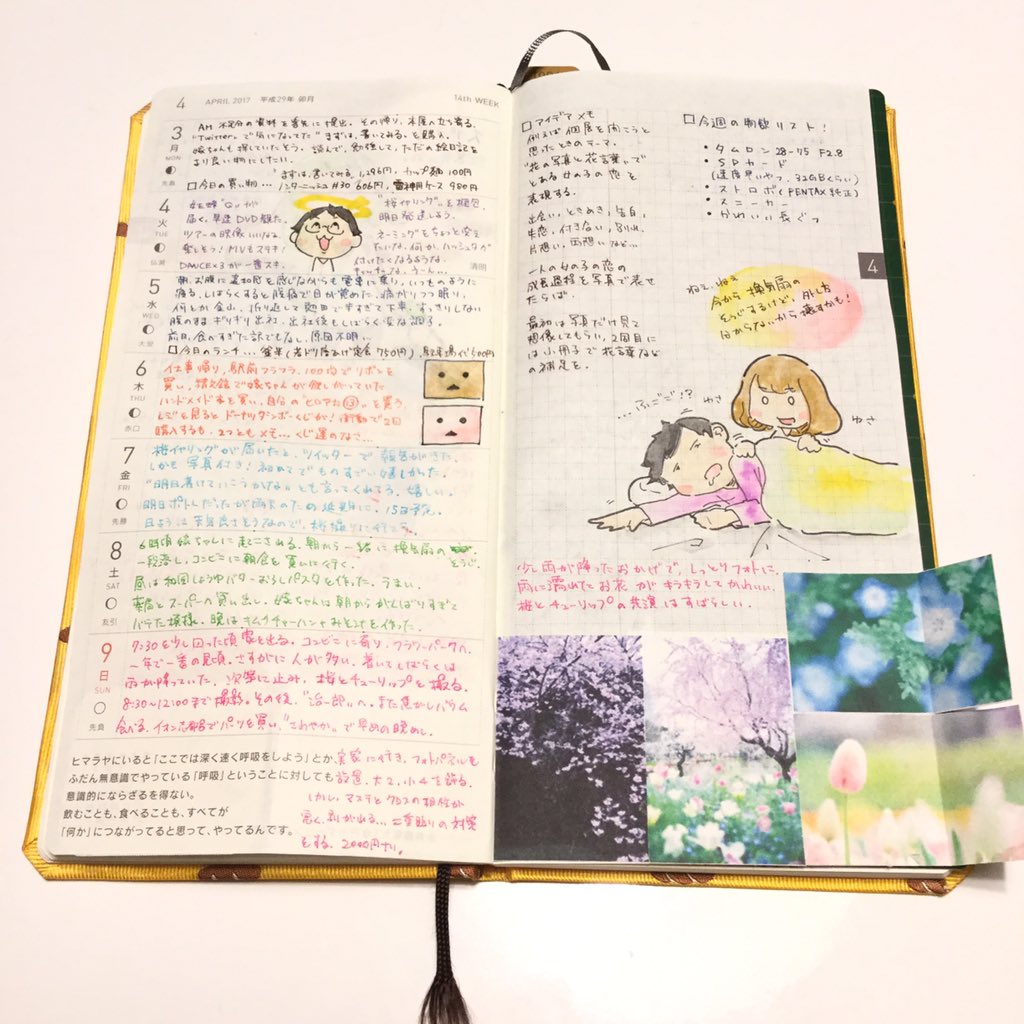 4 APRIL 2017 平成29年 卯月 14th WEEK
3
月
MON
先負
AM 不足分の資料を書先に提出。その帰り、本屋へ立ち寄る。
"Twitter"で気になってた"まずは、書いてみる。を購入。
嫁ちゃんも探していたそう。読んで、勉強して、ただの絵日記を
より良い物にしたい。
まずは、書いてみる。1,296円、カップ麺 100円
□今日の買い物…
4
火
TUE
仏滅
届く。早速DVD観た。
ツアーの映像いいなぁ。
楽しそう！MVもステキ！
DANCE×3が一番スキ。
桜イヤリングを梱包。
明日発送しよう。
ネーミングをちょっと変え
たいな。何か、ハッシュタグ
付けたくなるような。
うーん…
清明
5
水
WED
大安
朝、お腹に違和感を感じながらも電車に乗り、いつものように
座る。しばらくすると腹痛で目が覚めた。痛がりつつ眠り、
何とか金山。折り返して熱田で歩けて下車。すっきりしない
腹のまま ギリギリ出社。出社後もしばらく変な調子。
前日、食べすぎた訳でもなし、原因不明…
□今日のランチ…
6
木
THU
赤口
仕事帰り、駅前フラフラ。100均でリボンを
買い、精文館で嫁ちゃんが欲しがっていた
ハンドメイド本を買い、自分の"ヒロアカ⑬"を買う。
レジを見るとドーナツダンボーくじが！衝動で2回
購入するも、2つともメモ…くじ運のなさ…
7
金
FRI
先勝
桜イヤリングが届いたと、ツイッターで報告がきた。
しかも写真付き！初めてでものすごい嬉しかった。
"明日着けていこうかな"とも言ってくれてる。嬉しい。
明日ポトレだったが雨天のため延期に。15日予定。
8
土
SAT
友引
6時頃嫁ちゃんに起こされる。朝から一緒に換気扇のそうじ。
一段落し、コンビニに朝食を買いに行く。
昼は和風しょうゆバターおろしパスタを作った。うまい。
薬局とスーパーの買い出し。嫁ちゃんは朝からがんばりすぎて
バテた模様。晩はキムチチャーハンとみそ汁を作った。
9
日
SUN
先負
7:30を少し回った頃家を出る。コンビニに寄り、フラワーパークへ。
一年で一番の見頃。さすがに人が多い。着いてしばらくは
雨が降っていた。次第に止み、桜とチューリップを撮る。
8:30〜12:00まで撮影。その後、"治一郎"へ。また焦がしバウム
食べる。イオン志都呂でパーツを買い、"さわやか"で早めの晩めし。
実家に行き、フォトパネルも
設置。大2、小4を飾る。
しかし、マステとクロスの相性が
悪く、剥がれる…二重貼りの対策
をする。2000円ナリ。
ヒマラヤにいると「ここでは深く速く呼吸をしよう」とか、
ふだん無意識でやっている「呼吸」ということに対しても
意識的にならざるを得ない。
飲むことも、食べることも、すべてが
「何か」につながってると思って、やってるんです。
□アイデアメモ
例えば個展を開こうと
思ったときのテーマ。
"花の写真と花言葉"で
とある女の子の恋を
表現する。
出会い、ときめき、告白、
失恋、付き合い、別れ、
片想い、両想いなど…
一人の女の子の恋の
成長過程を写真で表せ
たらば。
最初は写真だけ見て
想像してもらい、2回目に
は小冊子で花言葉など
の補足を。
□今週の物欲リスト！
・タムロン 28-75 F2.8
・SDカード
(速度早いやつ。32GBくらい)
・ストロボ(PENTAX純正)
・スニーカー
・かわいい長ぐつ
4
ねぇ、ねぇ
今から換気扇の
そうじするけど、外し方
分からないから壊すかも！
…ふごご!?
ゆさ
ゆさ
少し雨が降ったおかげで、しっとりフォトに
雨に濡れたお花がキラキラしてかわいい。
桜とチューリップの共演はすばらしい。